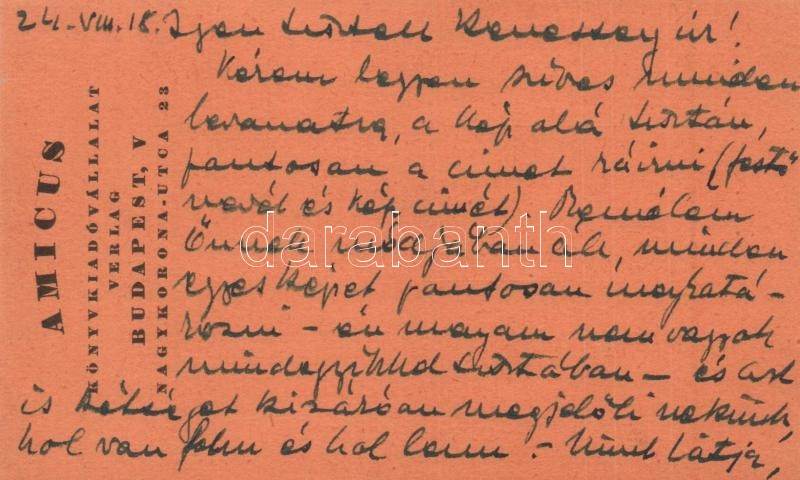 24. VIII. 18. Igen tisztelt Kenessey úr!
Kérem legyen szíves minden
levonatra, a kép alá tisztán,
pontosan a címet ráírni (festő
nevét és kép címét). Remélem
Önnek módjában áll, minden
egyes képet pontosan meghatá-
rozni – én magam nem vagyok
mindegyikkel tisztában – és azt
is kétséget kizáróan megjelöli nekünk,
hol van fenn és hol lenn. – Mint látja,
AMICUS
KÖNYVKIADÓVÁLLALAT
VERLAG
BUDAPEST, V
NAGYKORONA-UTCA 23
darabanth